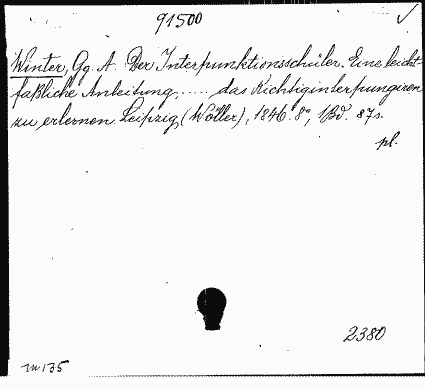 91500 ✓
Winter, Gg. A. Der Interpunktionsschüler. Eine leicht-
faßliche Anleitung, ..... das Richtiginterpungiren
zu erlernen. Leipzig, (Wöller), 1846. 8°, 1 Bd. 87 s.
pl.
2380
m 135